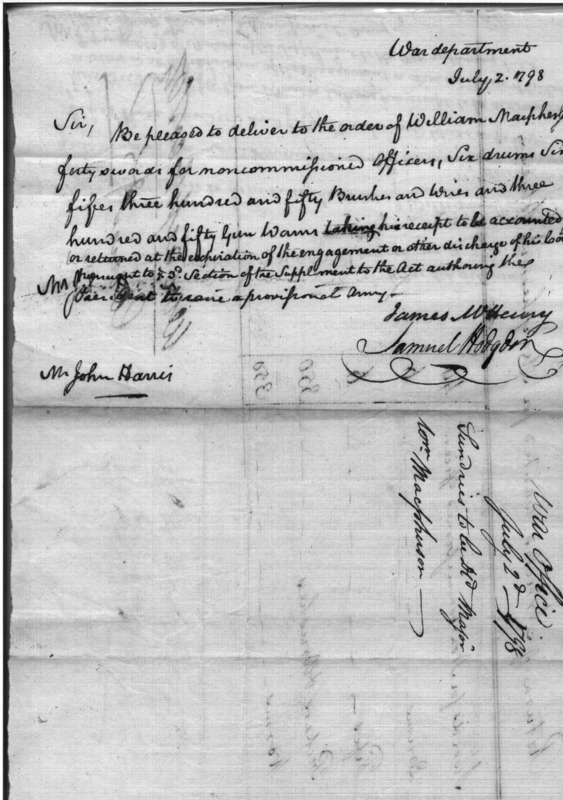 War department
July 2. 1798
Sir, Be pleased to deliver to the order of William Macpherso
forty swords for noncommissioned Officers, Six drums Six
fifes three hundred and fifty Brushes and wires and three
hundred and fifty Gun Worms taking his receipt to be accounted
or returned at the expiration of the engagement or other discharge of his
Pursuant to 3d. Section of the Supplement to the Act authoring the
President to raise a provisional Army.
James McHenry
Samuel Hodgdon
Mr John Harris
War Office
July 2d 1798
Sundries to be dd Major
Wm Macpherson